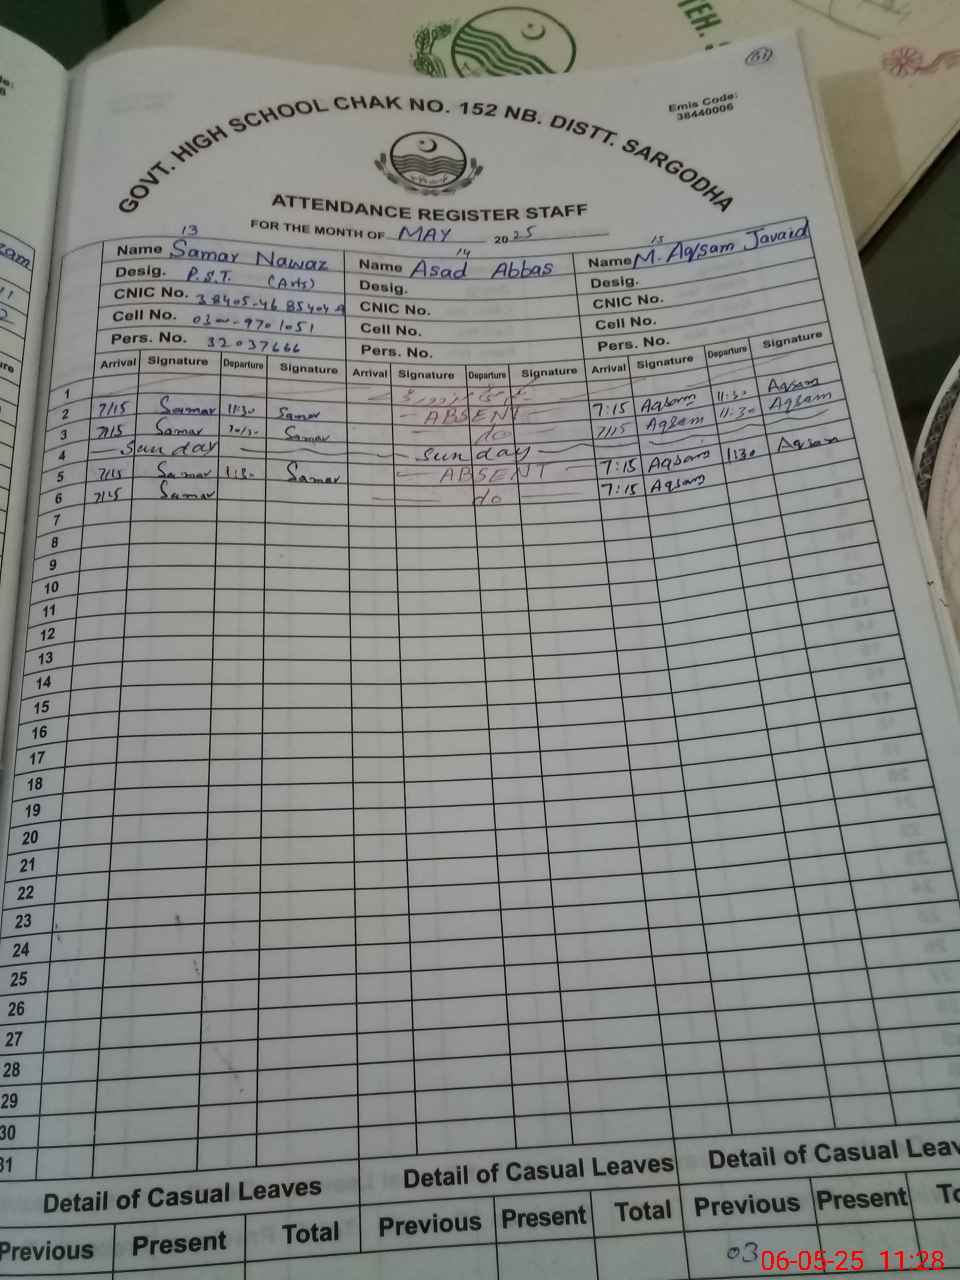 TEH.
Emis Code:
38440006
GOVT. HIGH SCHOOL CHAK NO. 152 NB. DISTT. SARGODHA
ATTENDANCE REGISTER STAFF
FOR THE MONTH OF MAY 2025
13 14 15
Name Samar Nawaz Name Asad Abbas Name M. Aqsam Javaid
Desig. P.S.T. (Arts) Desig. Desig.
CNIC No. CNIC No. CNIC No.
Cell No. Cell No. Cell No.
Pers. No. 32037666 Pers. No. Pers. No.
Arrival Signature Departure Signature Arrival Signature Departure Signature Arrival Signature Departure Signature
1
2 7/15 Samar 11:30 Samar ABSENT 7:15 Aqsam 11:30 Aqsam
3 7/15 Samar Samar do 7/15 Aqsam 11:30 Aqsam
4 Sunday Sunday
5 7/15 Samar Samar ABSENT 7:15 Aqsam 1:30 Aqsam
6 7/15 Samar do 7:15 Aqsam
7
8
9
10
11
12
13
14
15
16
17
18
19
20
21
22
23
24
25
26
27
28
29
30
31
Detail of Casual Leaves Detail of Casual Leaves Detail of Casual Leav
Previous Present Total Previous Present Total Previous Present To
03
06-05-25 11:28